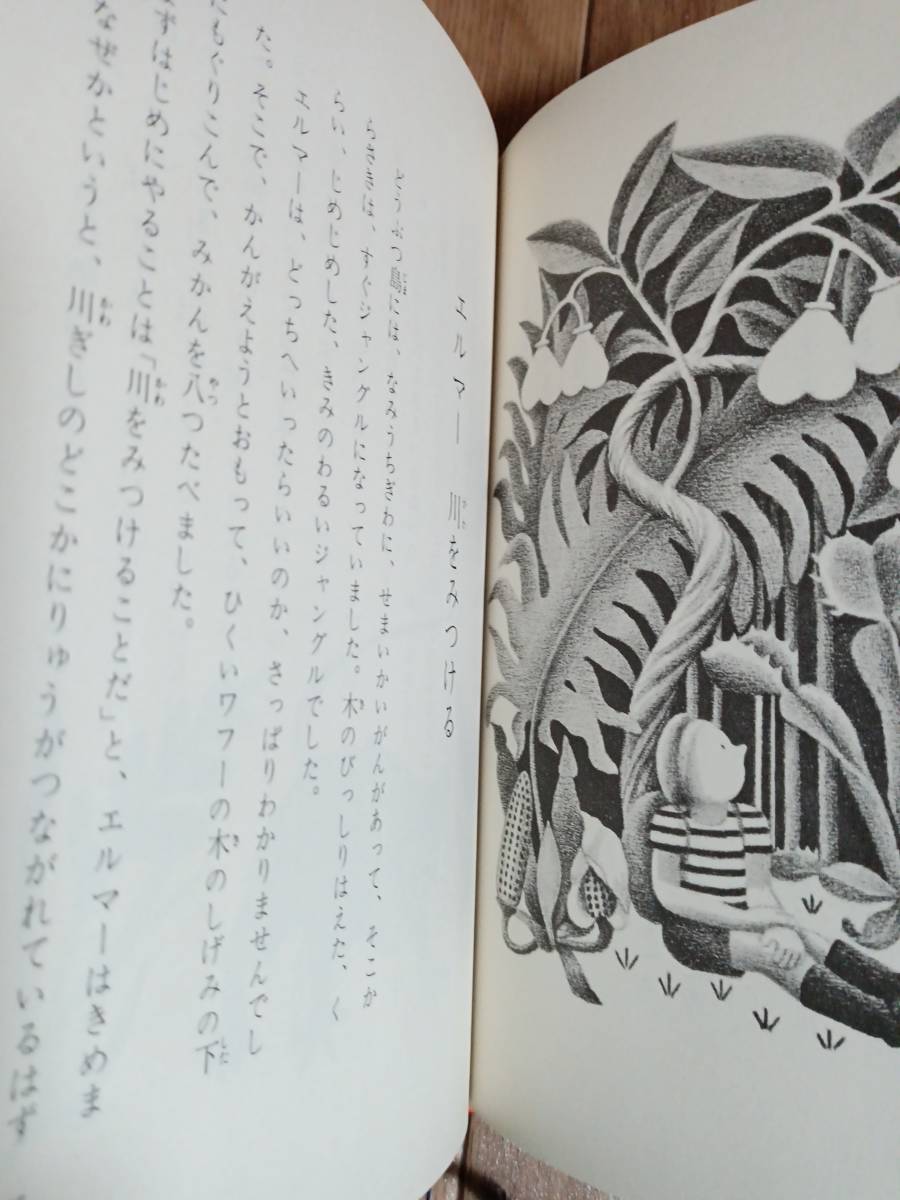 エルマー　川をみつける
どうぶつ島には、なみうちぎわに、せまいかいがんがあって、そこか
らさきは、すぐジャングルになっていました。木のびっしりはえた、く
らい、じめじめした、きみのわるいジャングルでした。
エルマーは、どっちへいったらいいのか、さっぱりわかりませんでし
た。そこで、かんがえようとおもって、ひくいワフーの木のしげみの下
にもぐりこんで、みかんを八つたべました。
ずはじめにやることは「川をみつけることだ」と、エルマーはきめま
なぜかというと、川ぎしのどこかにりゅうがつながれているはず